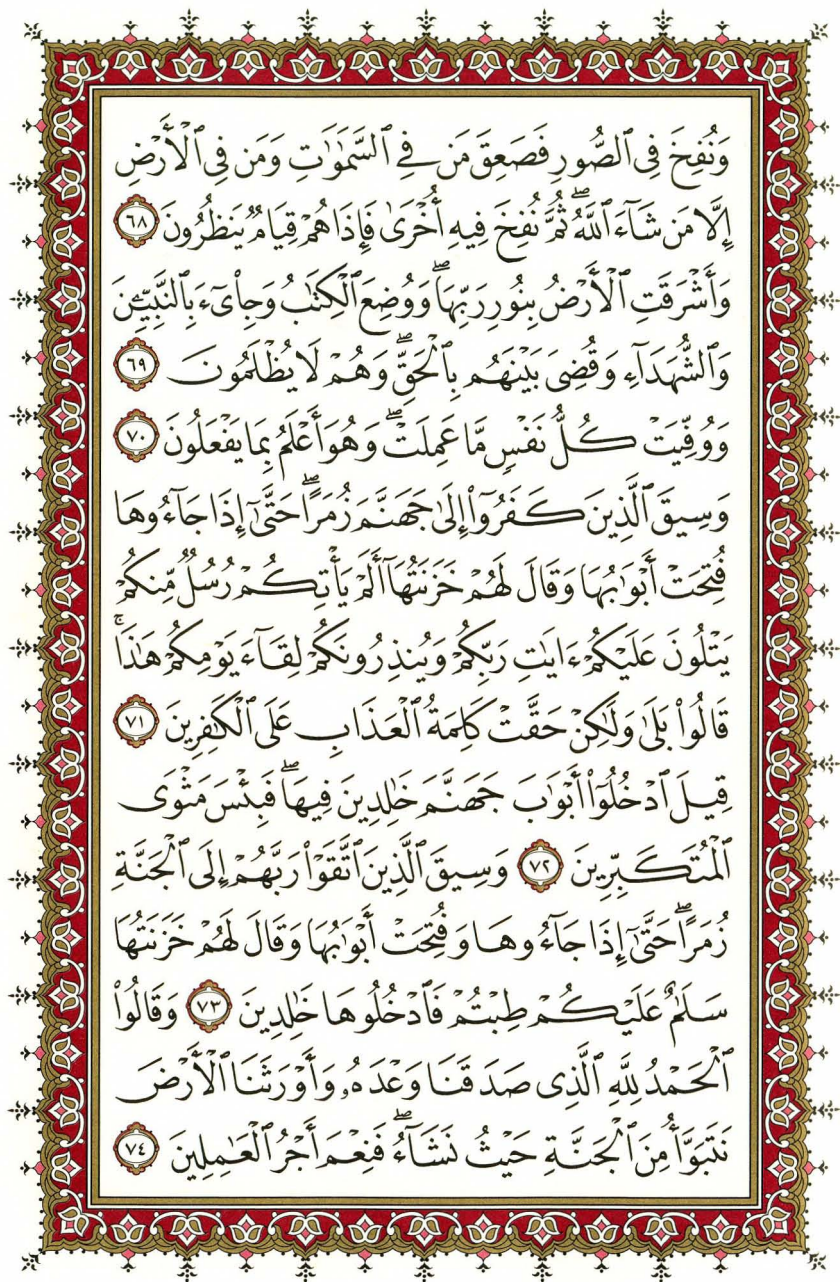 وَنُفِخَ فِى ٱلصُّورِ فَصَعِقَ مَن فِى ٱلسَّمَٰوَٰتِ وَمَن فِى ٱلْأَرْضِ
إِلَّا مَن شَآءَ ٱللَّهُ ۖ ثُمَّ نُفِخَ فِيهِ أُخْرَىٰ فَإِذَا هُمْ قِيَامٌ يَنظُرُونَ ٦٨
وَأَشْرَقَتِ ٱلْأَرْضُ بِنُورِ رَبِّهَا ۖ وَوُضِعَ ٱلْكِتَٰبُ وَجِا۟ىٓءَ بِٱلنَّبِيِّـۧنَ
وَٱلشُّهَدَآءِ وَقُضِىَ بَيْنَهُم بِٱلْحَقِّ ۖ وَهُمْ لَا يُظْلَمُونَ ٦٩
وَوُفِّيَتْ كُلُّ نَفْسٍ مَّا عَمِلَتْ ۖ وَهُوَ أَعْلَمُ بِمَا يَفْعَلُونَ ٧٠
وَسِيقَ ٱلَّذِينَ كَفَرُوٓا۟ إِلَىٰ جَهَنَّمَ زُمَرًا ۖ حَتَّىٰٓ إِذَا جَآءُوهَا
فُتِحَتْ أَبْوَٰبُهَا وَقَالَ لَهُمْ خَزَنَتُهَآ أَلَمْ يَأْتِكُمْ رُسُلٌ مِّنكُمْ
يَتْلُونَ عَلَيْكُمْ ءَايَٰتِ رَبِّكُمْ وَيُنذِرُونَكُمْ لِقَآءَ يَوْمِكُمْ هَٰذَا ۚ
قَالُوا۟ بَلَىٰ وَلَٰكِنْ حَقَّتْ كَلِمَةُ ٱلْعَذَابِ عَلَى ٱلْكَٰفِرِينَ ٧١
قِيلَ ٱدْخُلُوٓا۟ أَبْوَٰبَ جَهَنَّمَ خَٰلِدِينَ فِيهَا ۖ فَبِئْسَ مَثْوَى
ٱلْمُتَكَبِّرِينَ ٧٢ وَسِيقَ ٱلَّذِينَ ٱتَّقَوْا۟ رَبَّهُمْ إِلَى ٱلْجَنَّةِ
زُمَرًا ۖ حَتَّىٰٓ إِذَا جَآءُوهَا وَفُتِحَتْ أَبْوَٰبُهَا وَقَالَ لَهُمْ خَزَنَتُهَا
سَلَٰمٌ عَلَيْكُمْ طِبْتُمْ فَٱدْخُلُوهَا خَٰلِدِينَ ٧٣ وَقَالُوا۟
ٱلْحَمْدُ لِلَّهِ ٱلَّذِى صَدَقَنَا وَعْدَهُۥ وَأَوْرَثَنَا ٱلْأَرْضَ
نَتَبَوَّأُ مِنَ ٱلْجَنَّةِ حَيْثُ نَشَآءُ ۖ فَنِعْمَ أَجْرُ ٱلْعَٰمِلِينَ ٧٤